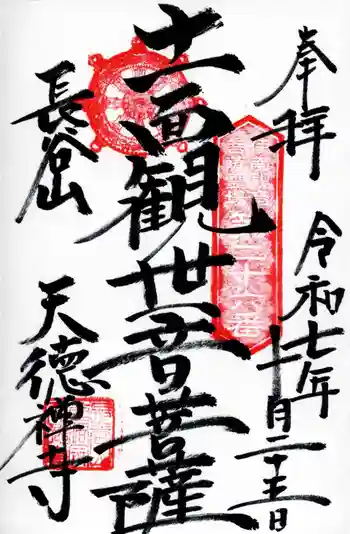 奉拝
令和七年
十月二十五日
十一面観世音菩薩
長谷山
天徳禅寺